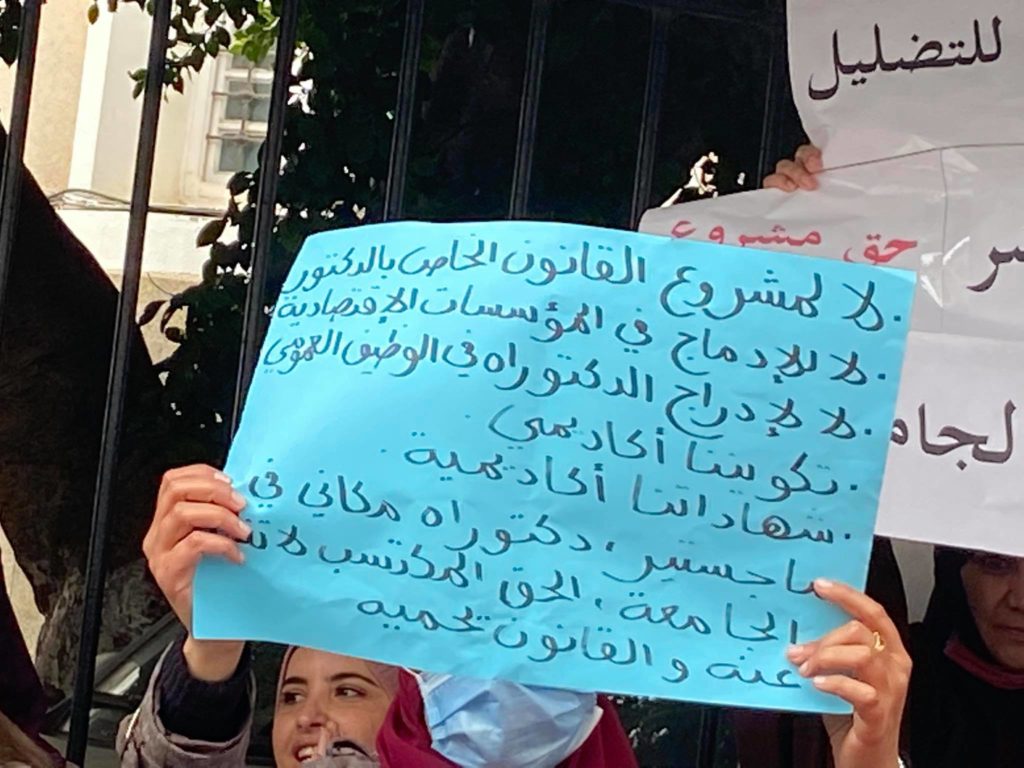 للتضليل
حق مشروع
لجام
. لا لمشروع القانون الخاص بالدكتور
. لا للإدماج في المؤسسات الإقتصادية
. لا لإدراج الدكتوراه في الوظيف العمومي
. تكويننا أكاديمي .
. شهاداتنا أكاديمية .
ماجستير ، دكتوراه مكاني في
الجامعة ، الحق المكتسب لا
عنه و القانون يحميه